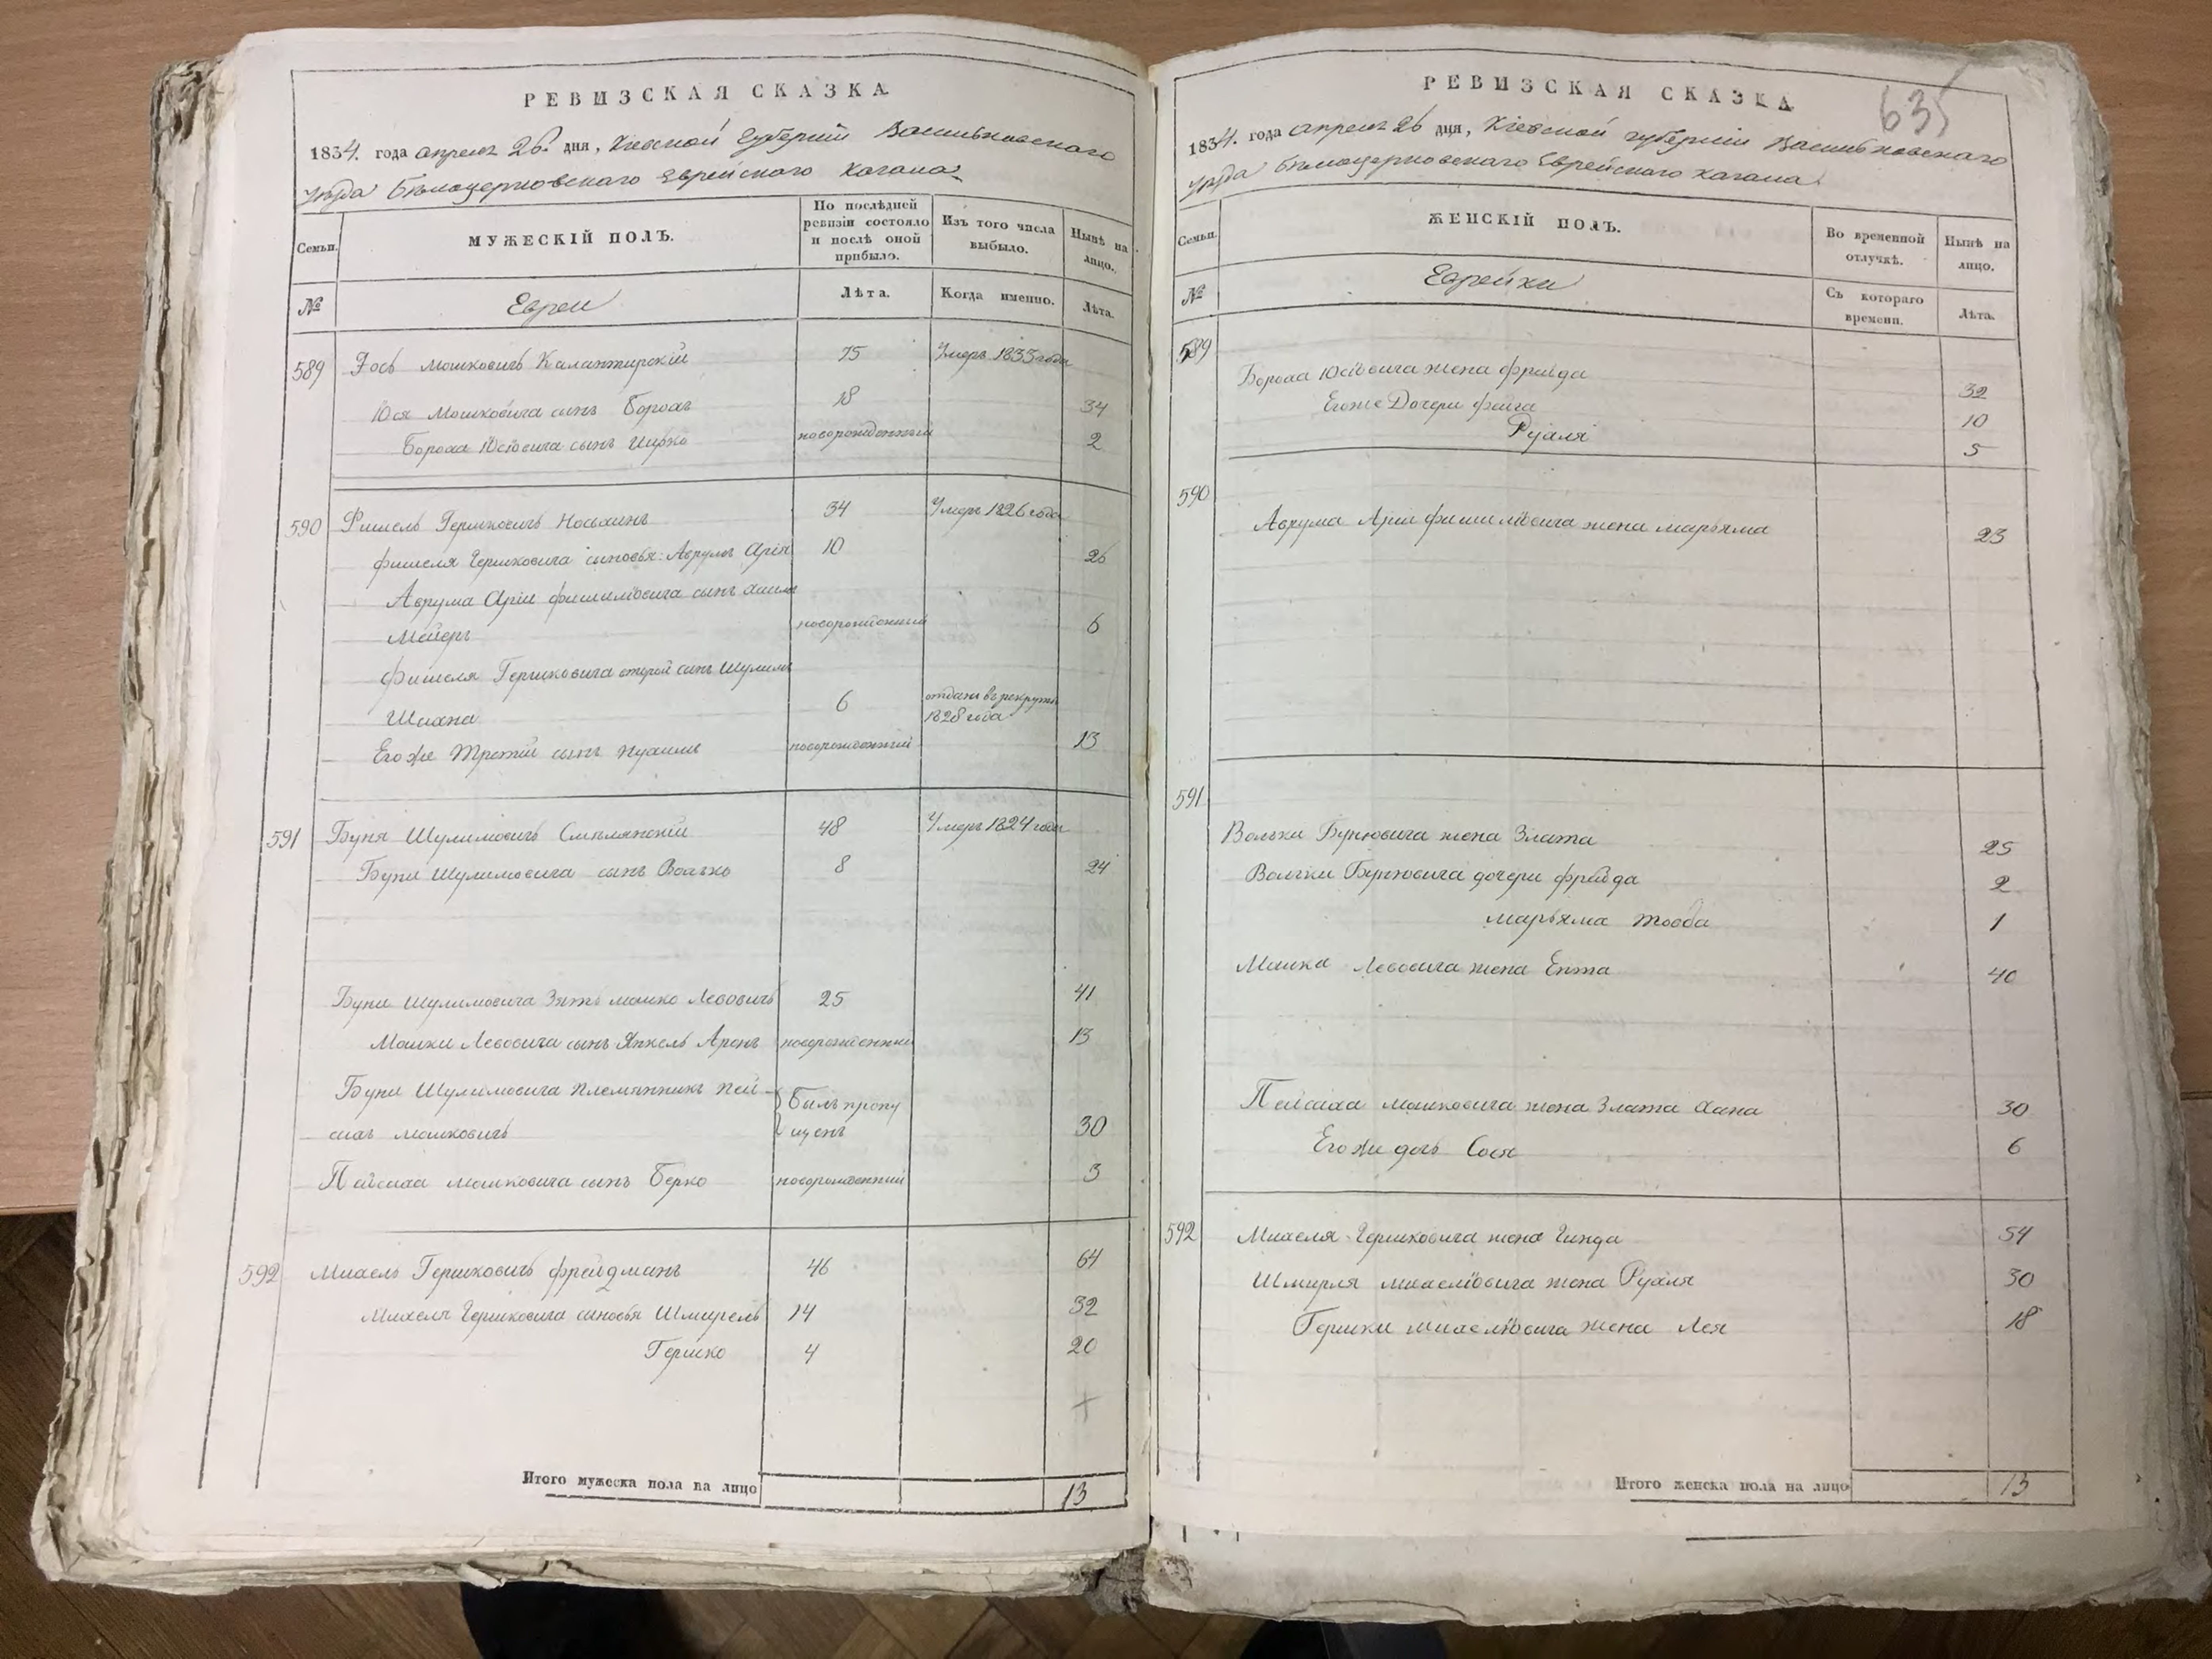 РЕВИЗСКАЯ СКАЗКА
1834. года апреля 26. дня, Кіевской Губерніи Васильковскаго
уѣзда Бѣлоцерковскаго Еврейскаго Кагала
Семьи.
МУЖЕСКІЙ ПОЛЪ.
По послѣдней ревизіи состояло и послѣ оной прибыло.
Изъ того числа выбыло.
Нынѣ на лицо.
№
Евреи
Лѣта.
Когда именно.
Лѣта.
589 Іось Мошковичъ Калантирскій 75 Умеръ 1833 года
Юся Мошковича сынъ Борохъ 18 34
Бороха Юсіовича сынъ Ицко новорожденный 2
590 Фишель Гершковичъ 34 Умеръ 1826 года
Фишеля Гершковича сыновья: Аврумъ Арія 10 26
Аврума Аріи Фишилiовича сынъ Хаимъ
Мейеръ новорожденный 6
Фишеля Гершковича второй сынъ Шулимъ
Шахна 6 отданъ въ рекруты 1828 года
Его же Третій сынъ Нухимъ новорожденный 13
591 Буня Шулимовичъ Смѣлянскій 48 Умеръ 1824 года
Буни Шулимовича сынъ Волько 8 24
Буни Шулимовича Зять Мошко Лейбовичъ 25 41
Мошки Лейбовича сынъ Янкель Аронъ новорожденный 13
Буни Шулимовича Племянникъ Пей-
сахъ Мошковичъ Былъ пропущенъ 30
Пейсаха Мошковича сынъ Берко новорожденный 3
592 Михель Гершковичъ Фрейдманъ 46 64
Михеля Гершковича сыновья Шмирель 14 32
Гершко 4 20
Итого мужеска пола на лицо 13
635
РЕВИЗСКАЯ СКАЗКА
1834. года апреля 26 дня, Кіевской губерніи Васильковскаго
уѣзда Бѣлоцерковскаго Еврейскаго Кагала
Семьи.
ЖЕНСКІЙ ПОЛЪ.
Во временной отлучкѣ.
Нынѣ на лицо.
№
Еврейки
Съ котораго времени.
Лѣта.
589
Бороха Юсіовича жена Фрайда 32
Его же Дочери Фейга 10
Рухля 5
590
Аврума Аріи Фишилiовича жена Марьяма 23
591
Вольки Бунiовича жена Злата 25
Вольки Бунiовича дочери Фрейда 2
Марьяма Товба 1
Мошки Лейбовича жена Ента 40
Пейсаха Мошковича жена Злата Хана 30
Его же дочь Сося 6
592 Михеля Гершковича жена Гинда 54
Шмирля Михелiовича жена Рухля 30
Гершки Михелiовича жена Лея 18
Итого женска пола на лицо 13